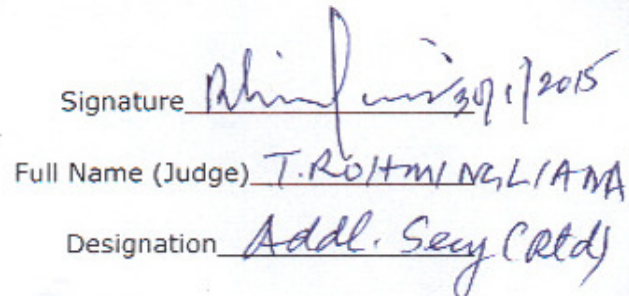 Signature 30/1/2015
Full Name (Judge) T. ROHMINGLIANA
Designation Addl. Secy (Rtd)